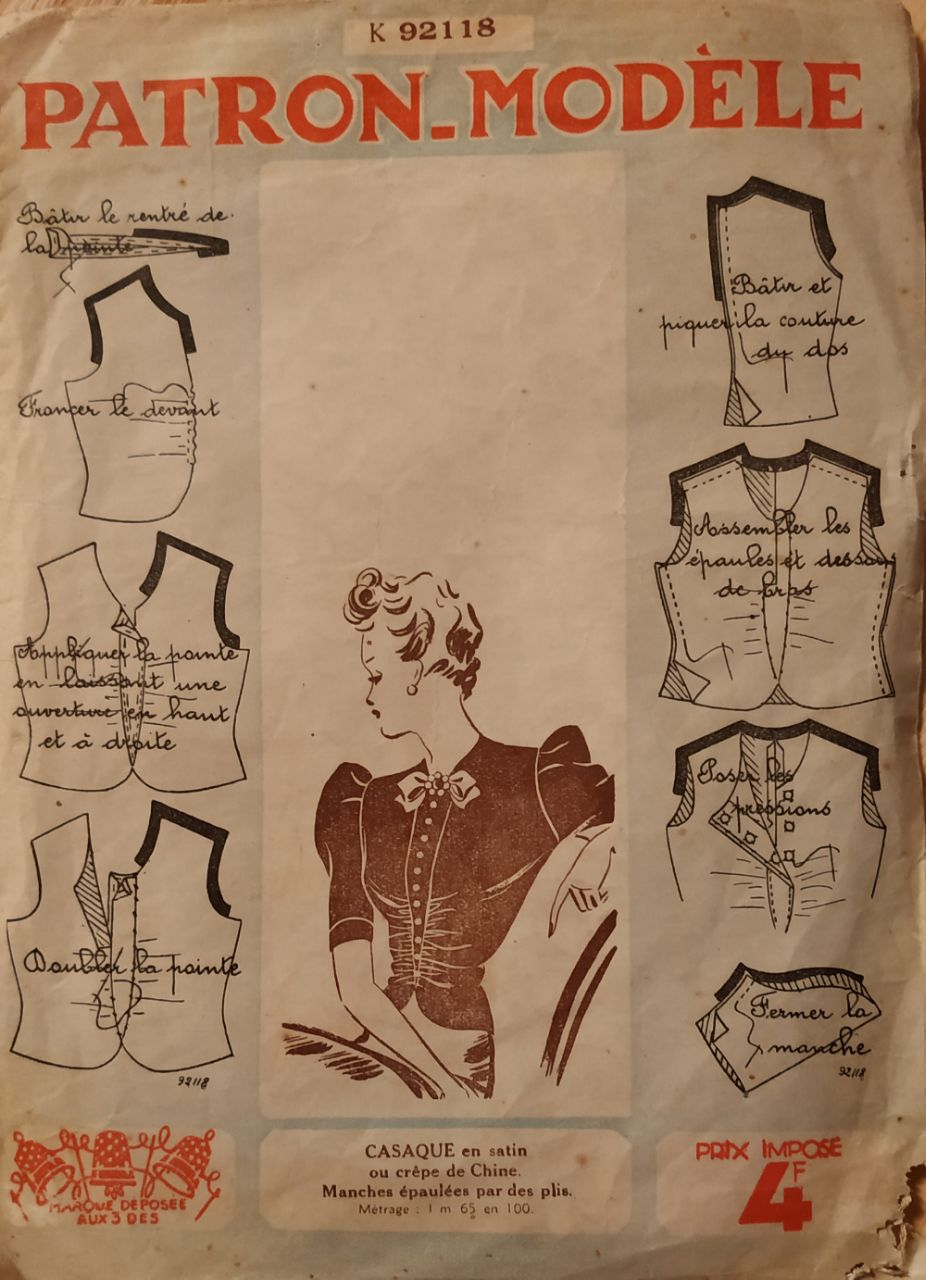 K 92118
PATRON-MODÈLE
Bâtir le rentré de
la pointe
Froncer le devant
Appliquer la pointe
en laissant une
ouverture en haut
et à droite
Doubler la pointe
92118
Bâtir et
piquer la couture
du dos
Assembler les
épaules et dessous
de bras
Poser les
pressions
Fermer la
manche
92118
MARQUE DEPOSEE
AUX 3 DES
CASAQUE en satin
ou crêpe de Chine.
Manches épaulées par des plis.
Métrage : 1 m 65 en 100.
PRIX IMPOSÉ
4F